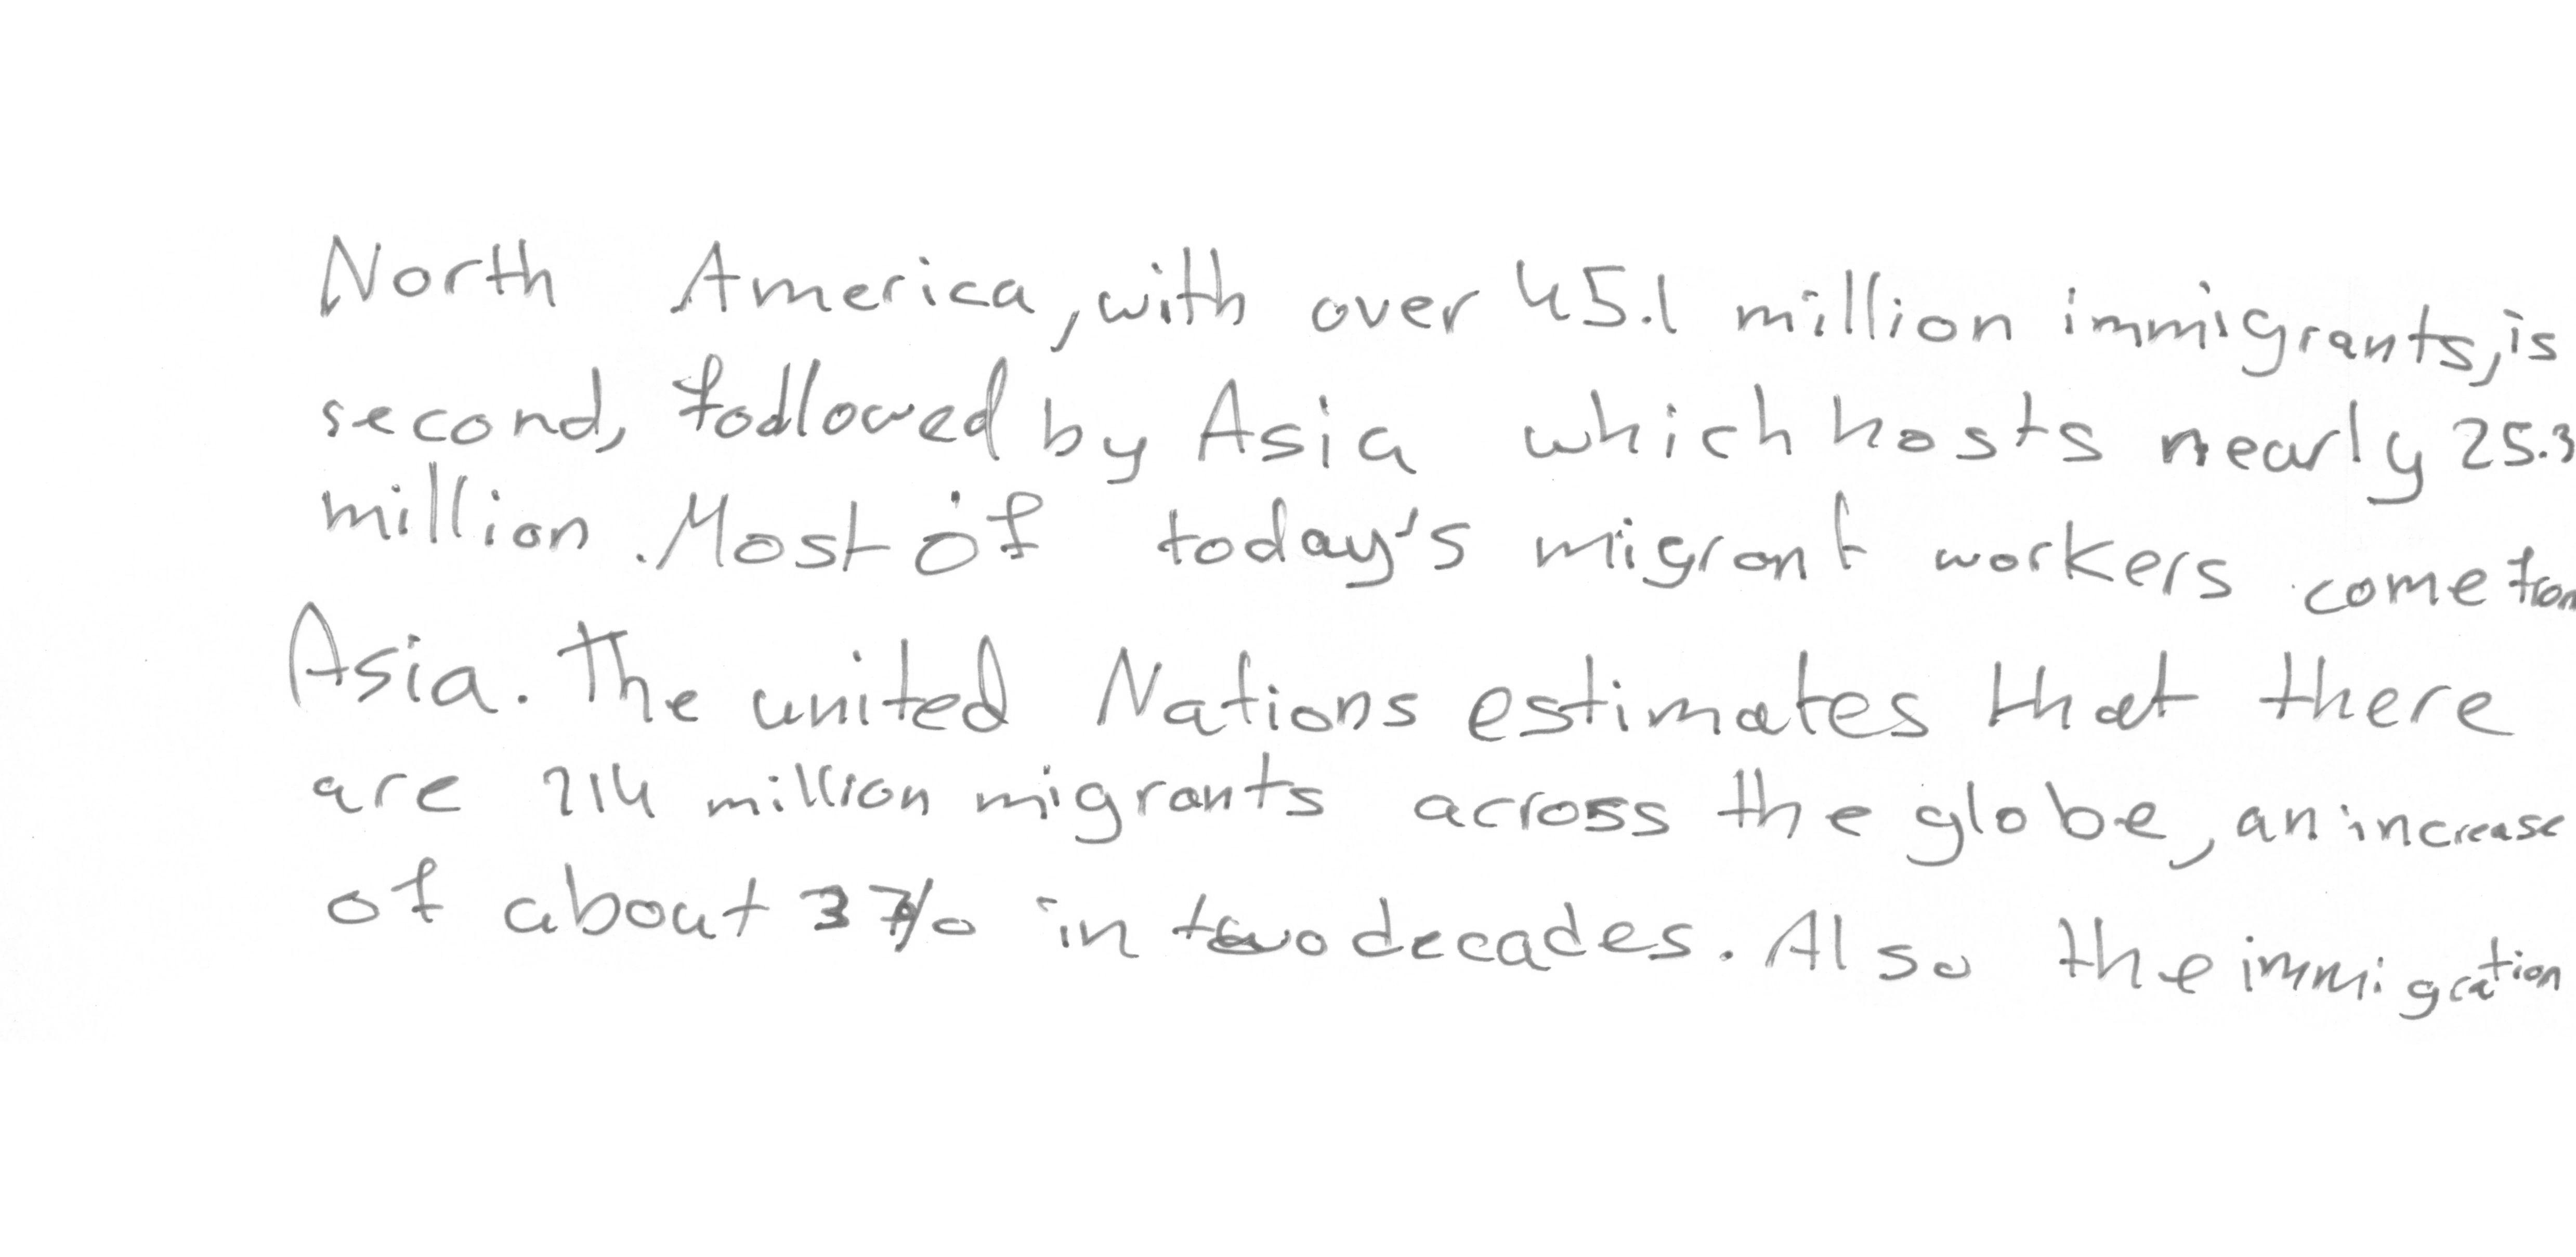 North America, with over 45.1 million immigrants, is
second, followed by Asia which hosts nearly 25.3
million. Most of today's migrant workers come from
Asia. The united Nations estimates that there
are 214 million migrants across the globe, an increase
of about 37% in two decades. Also the immigration